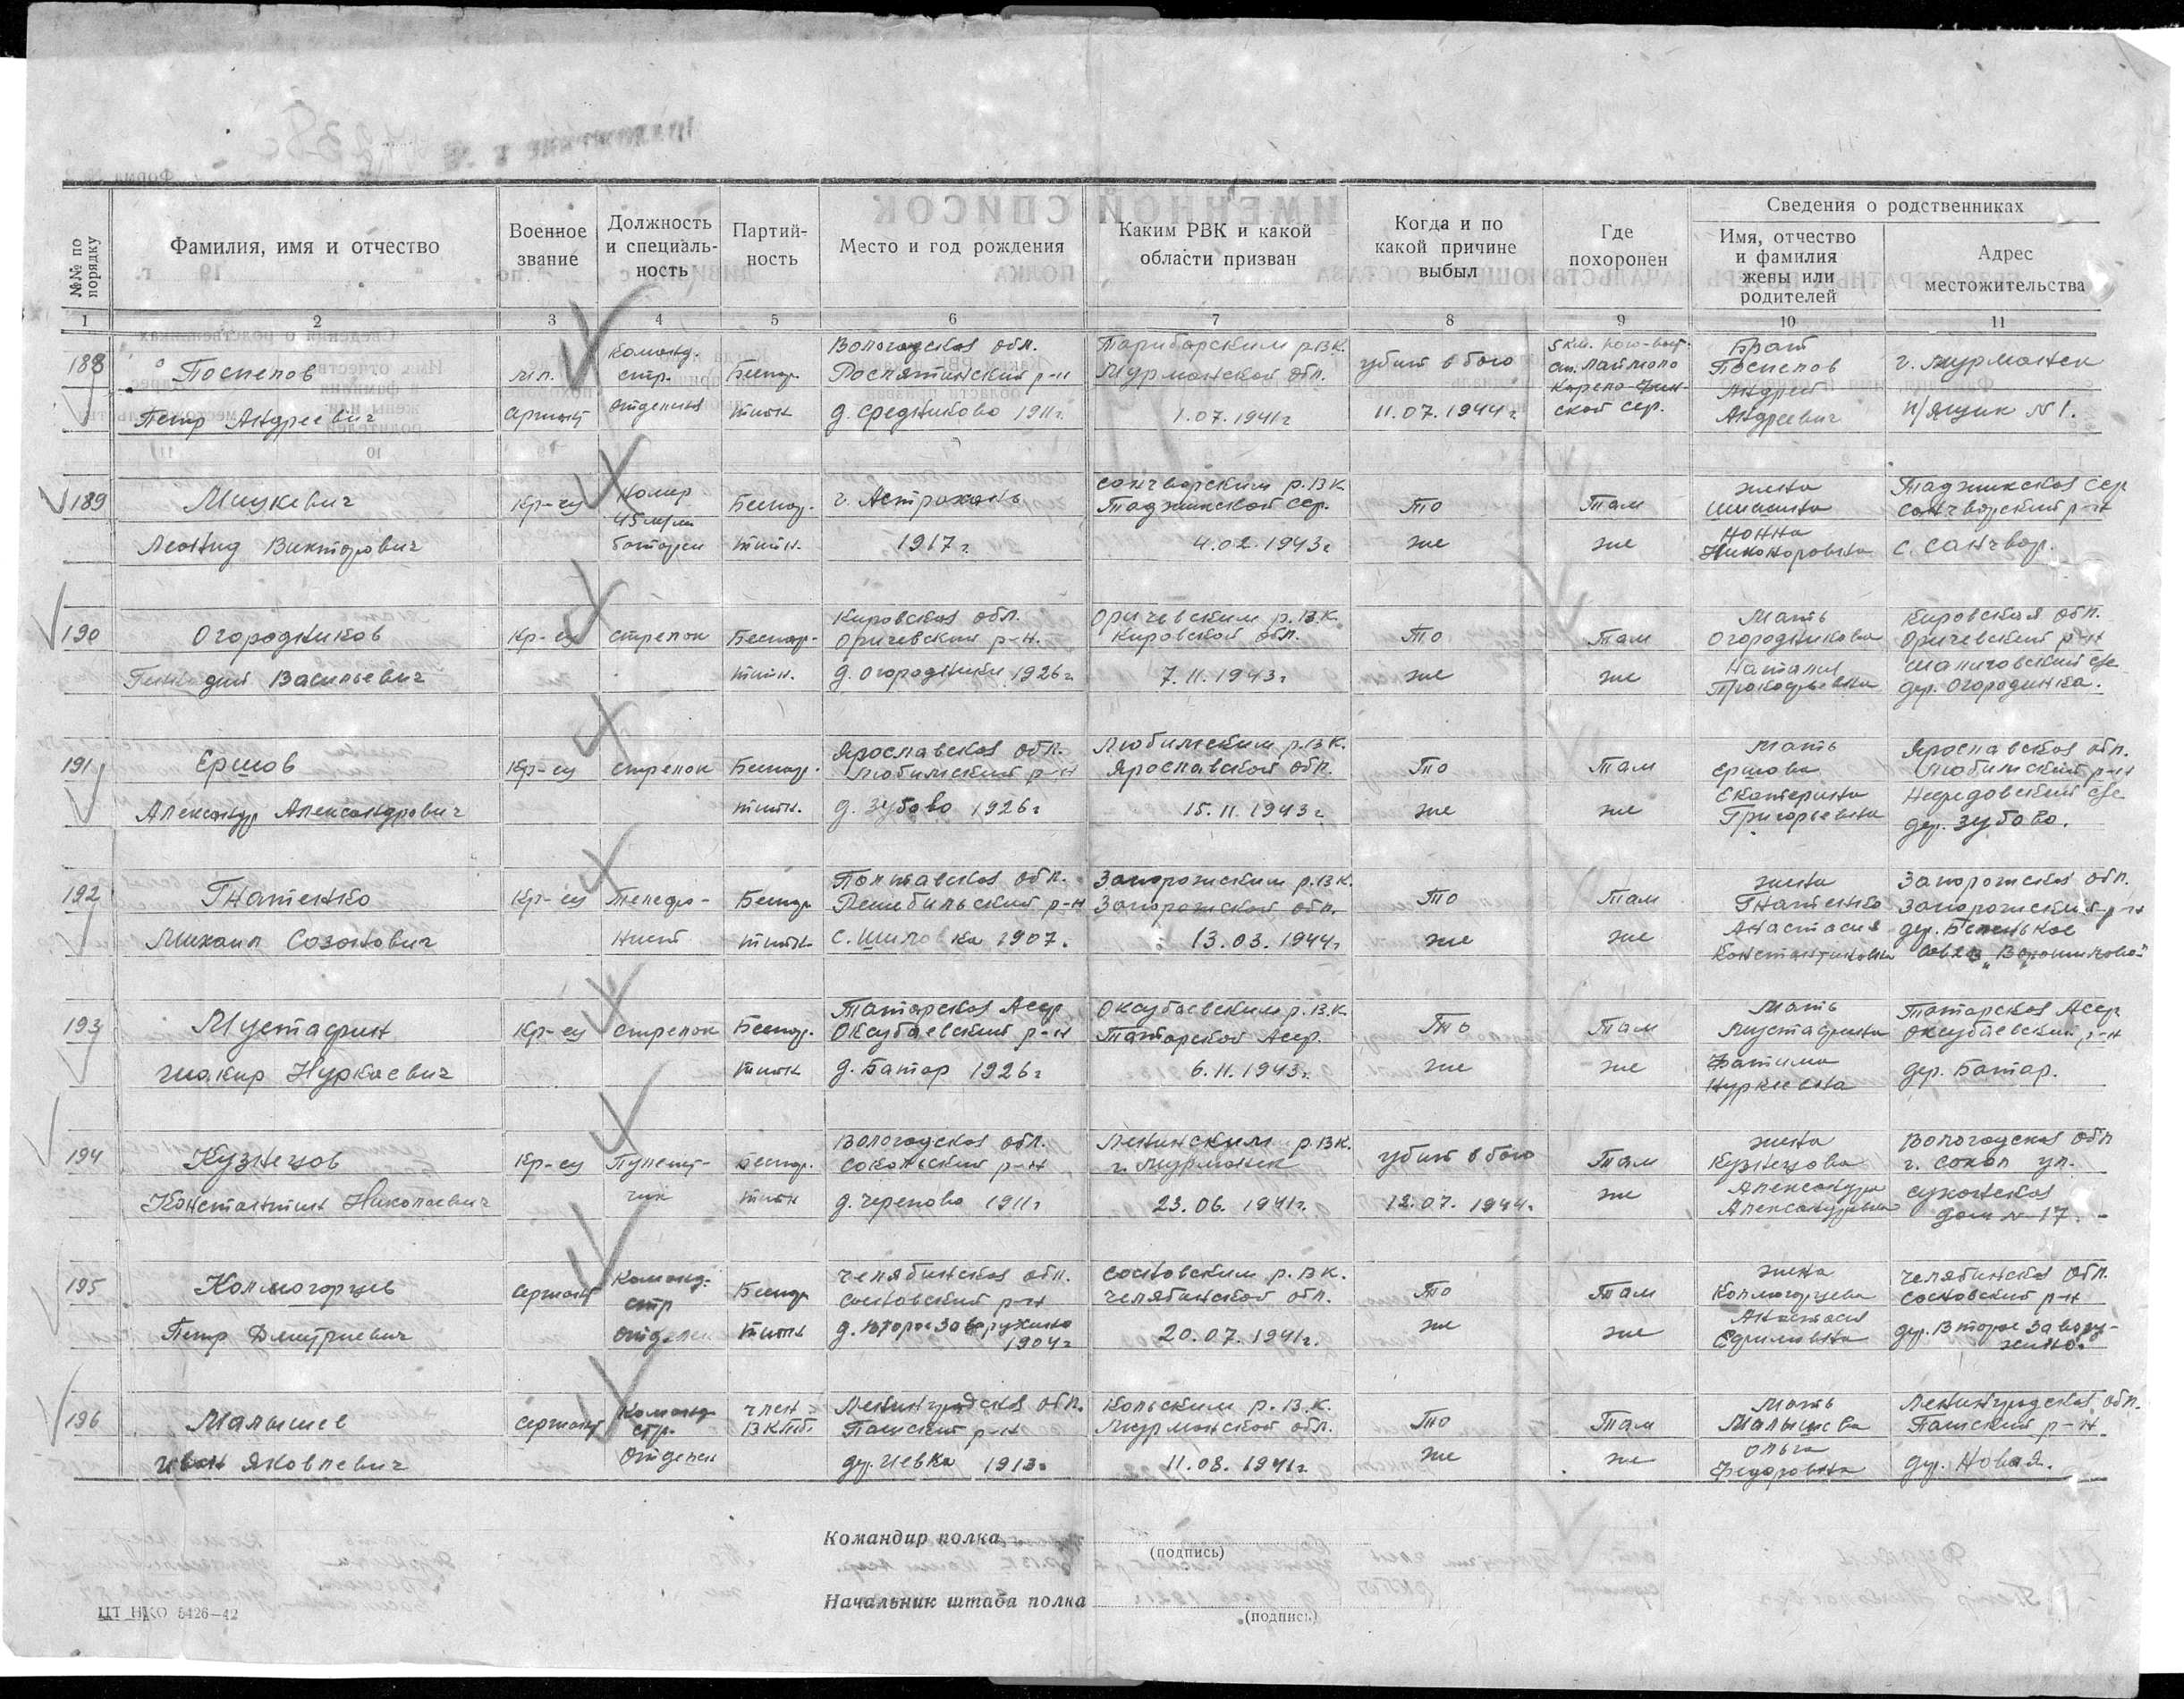 №№ по порядку
Фамилия, имя и отчество
Военное звание
Должность и специаль-ность
Партий-ность
Место и год рождения
Каким РВК и какой области призван
Когда и по какой причине выбыл
Где похоронен
Сведения о родственниках
Имя, отчество и фамилия жены или родителей
Адрес местожительства
1 2 3 4 5 6 7 8 9 10 11
188 Поспелов мл. команд. стр. Беспар- Вологодская обл. Рослятинский р-н р.в.к. Мурманской обл. убит в бою 5 км. юго-вост. ст. Лаймоло Карело-Фин- Брат Поспелов Андрей г. Мурманск
Петр Андреевич сержант отделения тийн д. Средниково 1911г. 1.07.1941г 11.07.1944г ской ССР. Андреевич п/ящик №1.
189 Мицкевич Кр-ец Номер 45 м/м Беспар- г. Астрахань р.в.к. Таджикской ССР. То Там жена Таджикская ССР
Леонид Викторович батареи тийн. 1917г. 4.02.1943г же же Нонна Никоноровна с. Санчвор.
190 Огородников Кр-ец стрелок Беспар- Кировская обл. Оричевский р-н. Оричевским р.в.к. Кировской обл. То Там Мать Огородникова Кировская обл. Оричевский р-н
Геннадий Васильевич тийн. д. Огородники 1926г 7.11.1943г же же Наталия Прокофьевна с/с дер. Огородинка.
191 Ершов Кр-ец стрелок Беспар- Ярославская обл. Любимский р-н Любимским р.в.к. Ярославской обл. То Там Мать Ершова Ярославская обл. Любимский р-н
Александр Александрович тийн. д. Зубово 1926г 15.11.1943г же же Екатерина Григорьевна с/с дер. Зубово.
192 Гнатенко Кр-ец Телефо- Беспар- Полтавская обл. р-н Запорожским р.в.к. Запорожской обл. То Там жена Гнатенко Запорожская обл. Запорожский р-н
Михаил Созонович нист тийн с. Шиловка 1907. 13.03.1944г же же Анастасия Константиновна дер. Беленькое
193 Мустафин Кр-ец стрелок Беспар- Татарская Асср Оксубаевский р-н Оксубаевским р.в.к. Татарской Асср. То Там Мать Мустафина Татарская Асср Оксубаевский р-н
Шакир Нуркаевич тийн д. Батар 1926г 6.11.1943г. же же Фатима дер. Батар.
194 Кузнецов Кр-ец Пулемет- Беспар. Вологодская обл. Сокольский р-н Ленинским р.в.к. г. Мурманск убит в бою Там жена Кузнецова Вологодская обл г. Сокол ул.
Константин Николаевич чик тийн д. Черепово 1911г 23.06.1941г. 12.07.1944. же Александра Александровна Сухонская дом №17.
195 Колмогорцев сержант Команд. стр Беспар Челябинская обл. Сосновский р-н Сосновским р.в.к. Челябинской обл. То Там жена Колмогорцева Челябинская обл. Сосновский р-н
Петр Дмитриевич отделен тийн д. 1904г 20.07.1941г. же же Анастасия Ефимовна
196 Малышев сержант Команд. стр. член ВКПб. Ленинградская обл. Пашский р-н Кольским р.в.к. Мурманской обл. То Там Мать Малышева Ленинградская обл. Пашский р-н
Иван Яковлевич Отделен 1913г 11.08.1941г же же Ольга Федоровна дер. Новая.
Командир полка
(подпись)
Начальник штаба полка
(подпись)
ЦТ НКО 5426—42